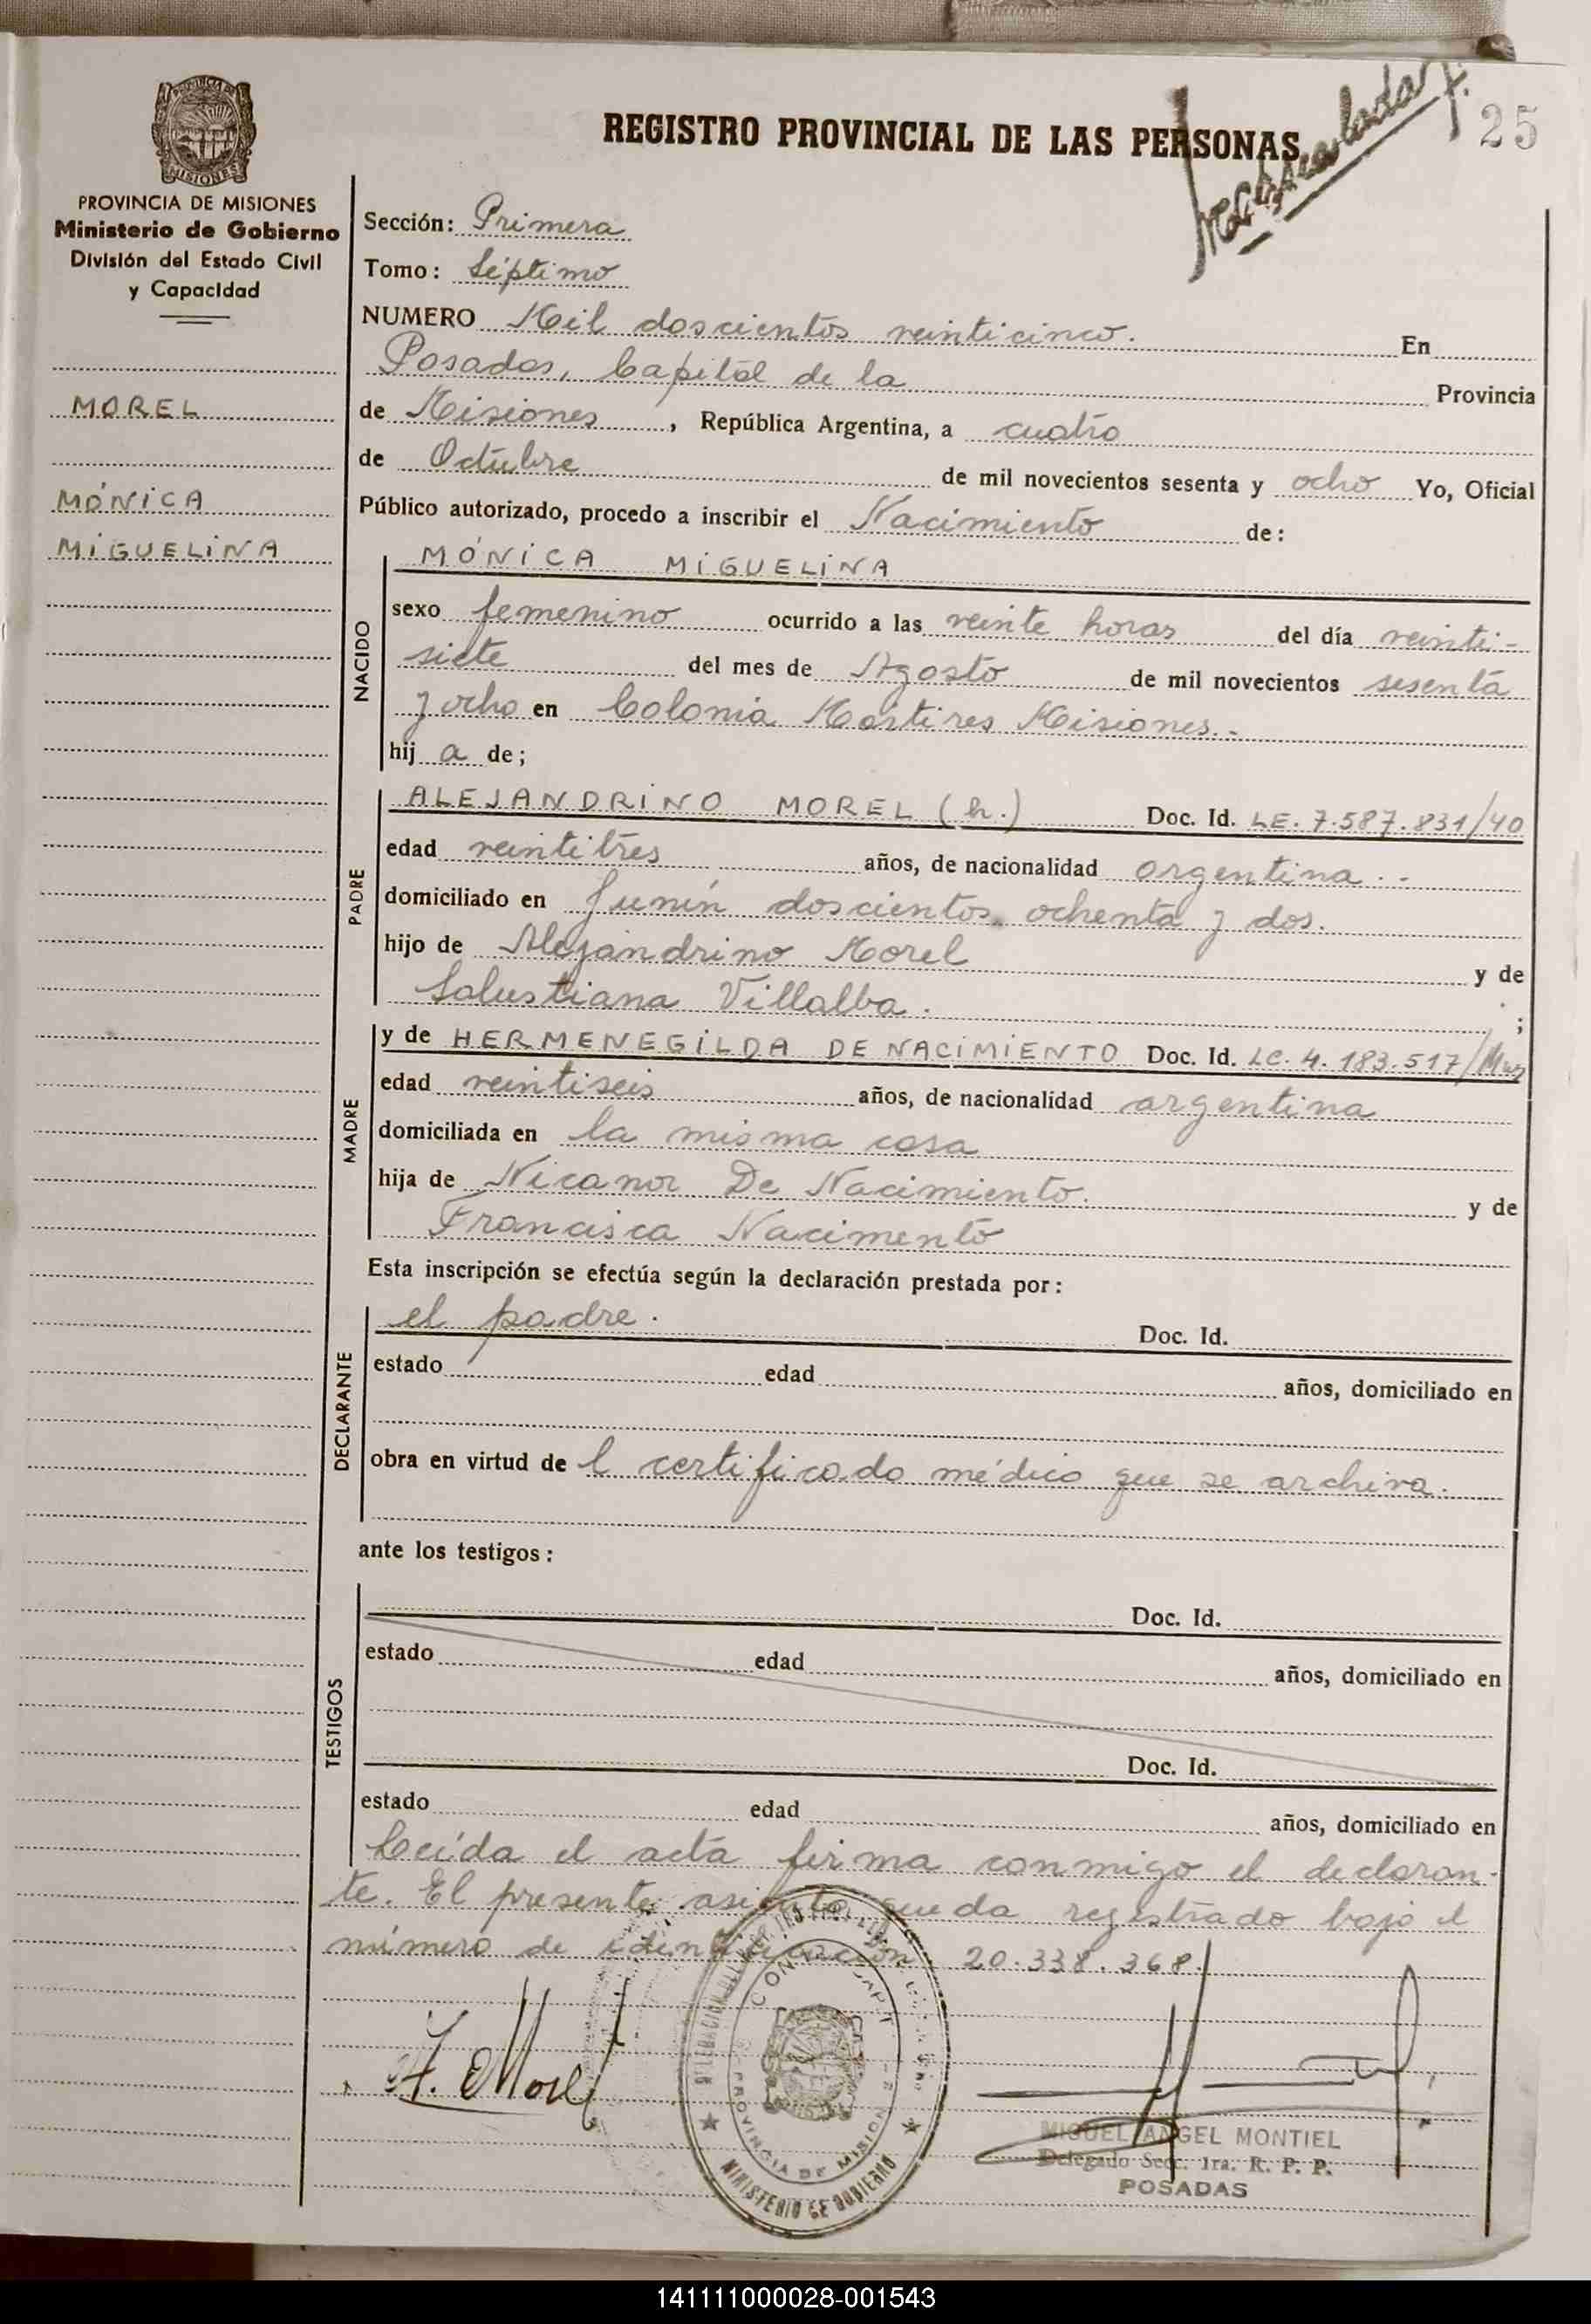 REGISTRO PROVINCIAL DE LAS PERSONAS
25
PROVINCIA DE MISIONES
PROVINCIA DE MISIONES
Ministerio de Gobierno
División del Estado Civil
y Capacidad
MOREL
MÓNICA
MIGUELINA
Sección: Primera
Tomo: Séptimo
NUMERO Mil doscientos veinticinco. En
Posadas, Capital de la Provincia
de Misiones, República Argentina, a cuatro
de Octubre de mil novecientos sesenta y ocho Yo, Oficial
Público autorizado, procedo a inscribir el Nacimiento de:
NACIDO
MÓNICA MIGUELINA
sexo femenino ocurrido a las veinte horas del día veinti-
siete del mes de Agosto de mil novecientos sesenta
y ocho en Colonia Mártires Misiones.-
hija de;
PADRE
ALEJANDRINO MOREL (h.) Doc. Id. LE. 7.587.831/40
edad veintitrés años, de nacionalidad argentina.-
domiciliado en Junín doscientos ochenta y dos.
hijo de Alejandrino Morel y de
Salustiana Villalba. ;
MADRE
y de HERMENEGILDA DE NACIMIENTO Doc. Id. LC. 4.183.517/Mns
edad veintiseis años, de nacionalidad argentina
domiciliada en la misma casa
hija de Nicanor De Nacimiento. y de
Francisca Nacimento
Esta inscripción se efectúa según la declaración prestada por:
DECLARANTE
el padre. Doc. Id.
estado edad años, domiciliado en
obra en virtud de l certificado médico que se archiva.
ante los testigos:
TESTIGOS
Doc. Id.
estado edad años, domiciliado en
Doc. Id.
estado edad años, domiciliado en
Leída el acta firma conmigo el declaran-
te. El presente asiento queda registrado bajo el
número de identificación 20.338.368.
A. Morel
PROVINCIA DE MISIONES
MINISTERIO DE GOBIERNO
MIGUEL ANGEL MONTIEL
Delegado Secc. 1ra. R. P. P.
POSADAS
141111000028-001543